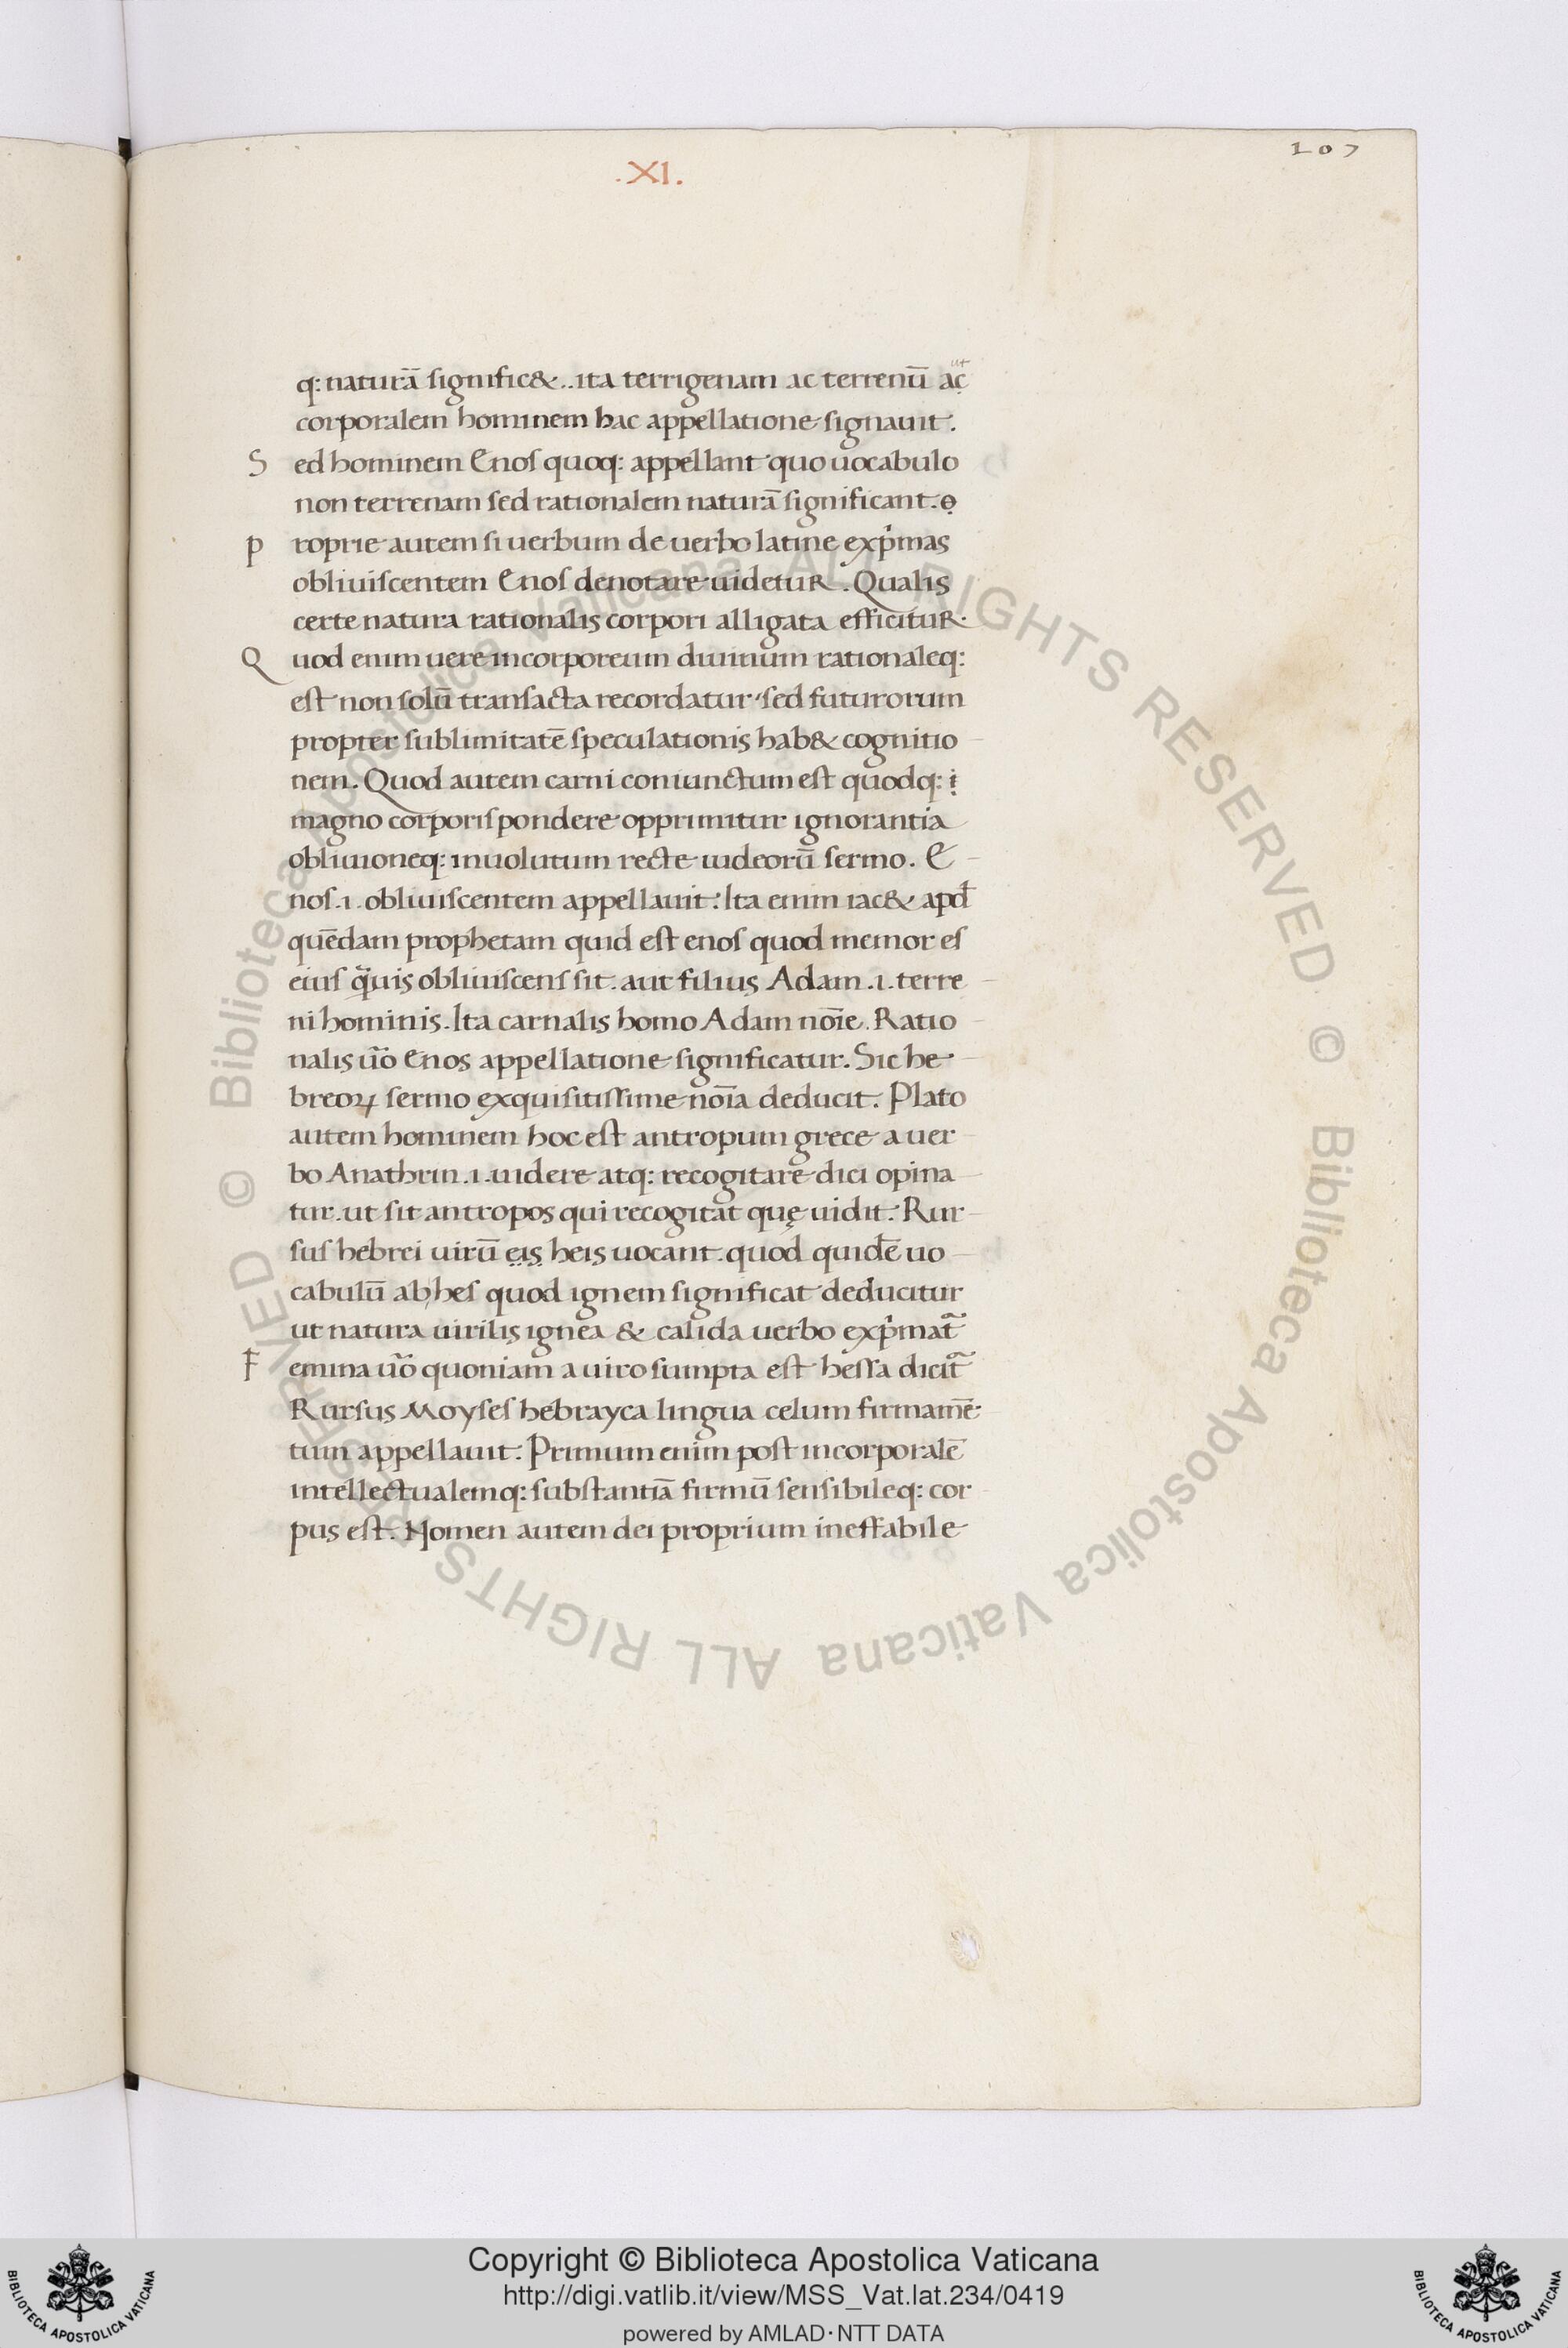 207
.XI.
q: naturā signific&..ita terrigenam ac terrenū ac ut
corporalem hominem hac appellatione signauit.
Sed hominem Enos quoq: appellant quo uocabulo
non terrenam sed rationalem naturā significant.
proprie autem si uerbum de uerbo latine exp̍mas
obliuiscentem Enos denotare uidetur. Qualis
certe natura rationalis corpori alligata efficitur.
Quod enim uere incorporeum diuinum rationaleq:
est non solū transacta recordatur sed futurorum
propter sublimitatē speculationis hab& cognitio
nem. Quod autem carni coniunctum est quodq:
magno corporis pondere opprimitur ignorantia
obliuioneq: inuolutum recte iudeorū sermo. E
nos .i. obliuiscentem appellauit. Ita enim iac& apd̄
quēdam prophetam quid est enos quod memor es
eius q̃uis obliuiscens sit. aut filius Adam .i. terre
ni hominis. Ita carnalis homo Adam noīe. Ratio
nalis ūo Enos appellatione significatur. Sic he
breoꝝ sermo exquisitissime noīa deducit. Plato
autem hominem hoc est antropum grece a uer
bo Anathrin .i. uidere atq: recogitare dici opina
tur. ut sit antropos qui recogitat quę uidit. Rur
sus hebrei uirū eis heis uocant. quod quidē uo
cabulū ab hes quod ignem significat deducitur
ut natura uirilis ignea & calida uerbo exp̍mat̃
Femina ūo quoniam a uiro sumpta est hessa dicit̃
Rursus Moyses hebrayca lingua celum firmamē
tum appellauit. Primum enim post incorporalē
intellectualemq: substantiā firmū sensibileq: cor
pus est. Nomen autem dei proprium ineffabile
© Biblioteca Apostolica Vaticana ALL RIGHTS RESERVED © Biblioteca Apostolica Vaticana ALL RIGHTS RESERVED
BIBLIOTECA APOSTOLICA VATICANA
Copyright © Biblioteca Apostolica Vaticana
http://digi.vatlib.it/view/MSS_Vat.lat.234/0419
powered by AMLAD·NTT DATA
BIBLIOTECA APOSTOLICA VATICANA